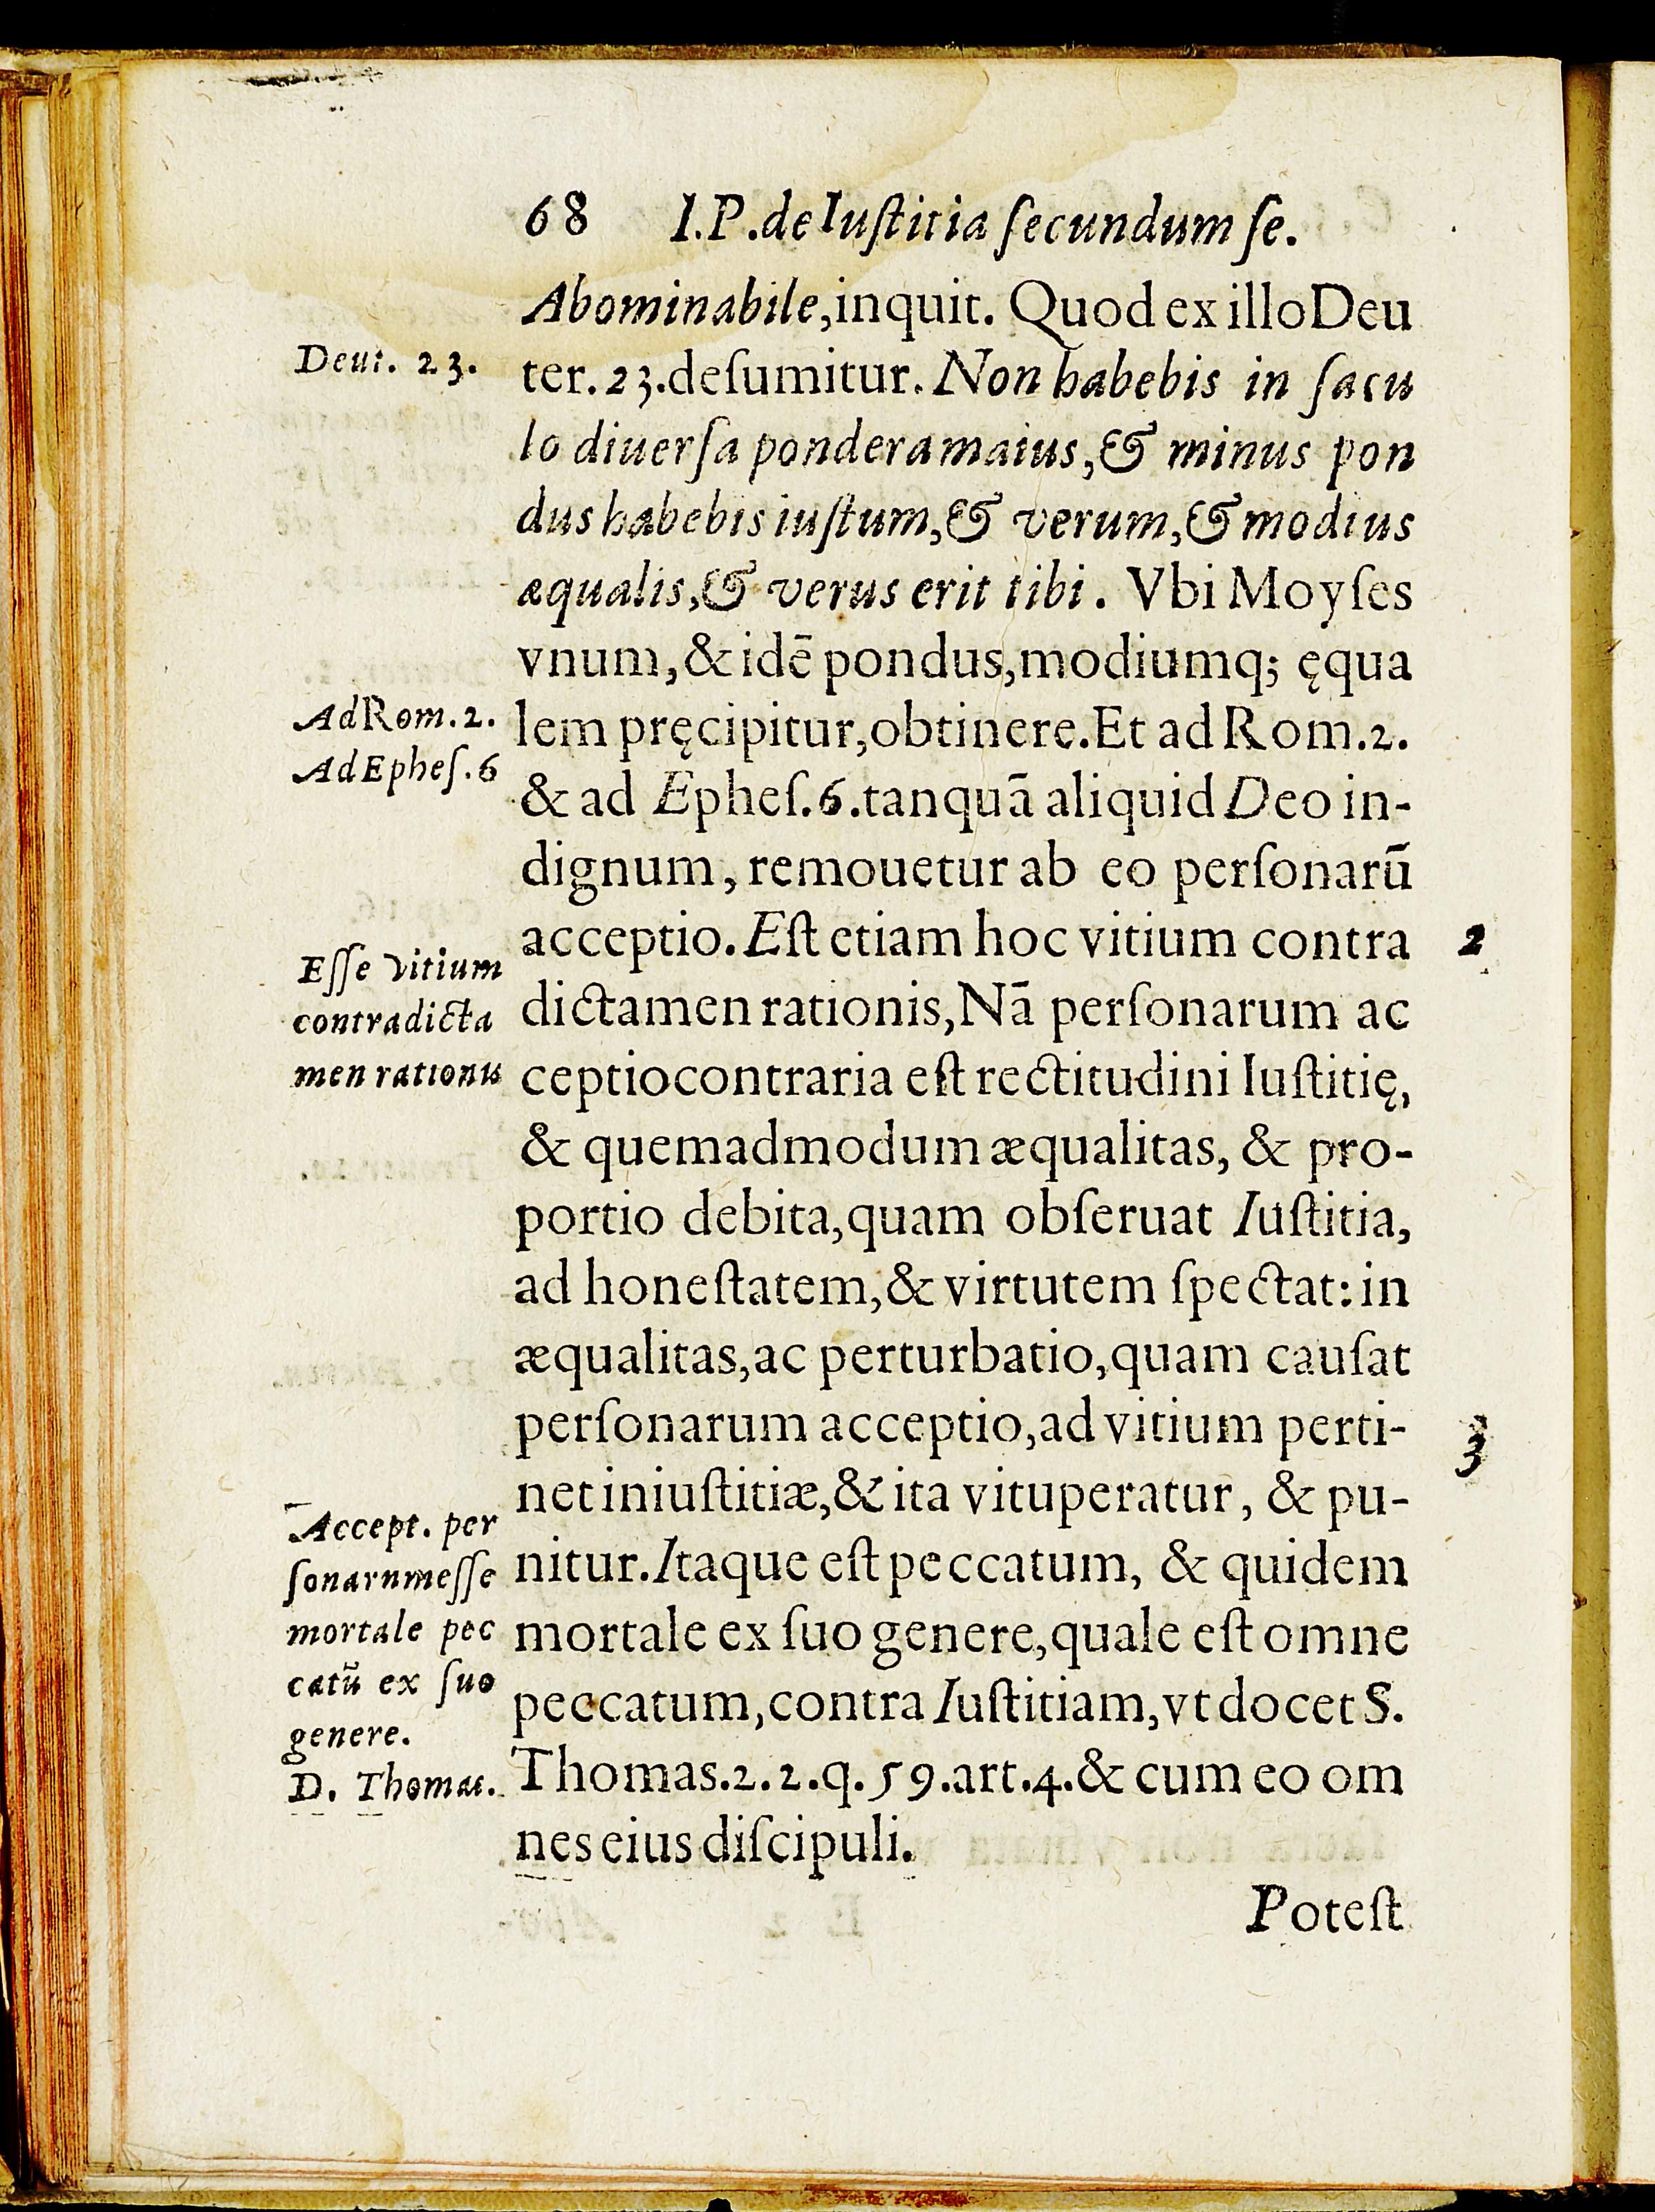 68 I.P.de Iuſtitia ſecundum ſe.
Abominabile,inquit. Quod ex illo Deu
Deut. 23.
ter. 23.deſumitur. Non habebis in ſacu
lo diuerſa pondera maius,& minus pon
dus habebis iuſtum,& verum,& modius
æqualis,& verus erit tibi. Vbi Moyſes
vnum,& idē pondus,modiumq; ęqua
Ad Rom. 2.
lem pręcipitur,obtinere.Et ad Rom.2.
Ad Epheſ. 6
& ad Epheſ.6.tanquā aliquid Deo in-
dignum, remouetur ab eo perſonarū
acceptio. Eſt etiam hoc vitium contra
2
Eſſe vitium
contra dicta
men rationis
dictamen rationis,Nā perſonarum ac
ceptio contraria eſt rectitudini Iuſtitię,
& quemadmodum æqualitas, & pro-
portio debita,quam obſeruat Iuſtitia,
ad honeſtatem,& virtutem ſpectat: in
æqualitas,ac perturbatio,quam cauſat
perſonarum acceptio,ad vitium perti-
3
net iniuſtitiæ,& ita vituperatur, & pu-
Accept. per
ſonarnm eſſe
mortale pec
catū ex ſuo
genere.
D. Thomas.
nitur.Itaque eſt peccatum, & quidem
mortale ex ſuo genere,quale eſt omne
peccatum,contra Iuſtitiam,vt docet S.
Thomas.2.2.q.59.art.4.& cum eo om
nes eius diſcipuli.
Poteſt